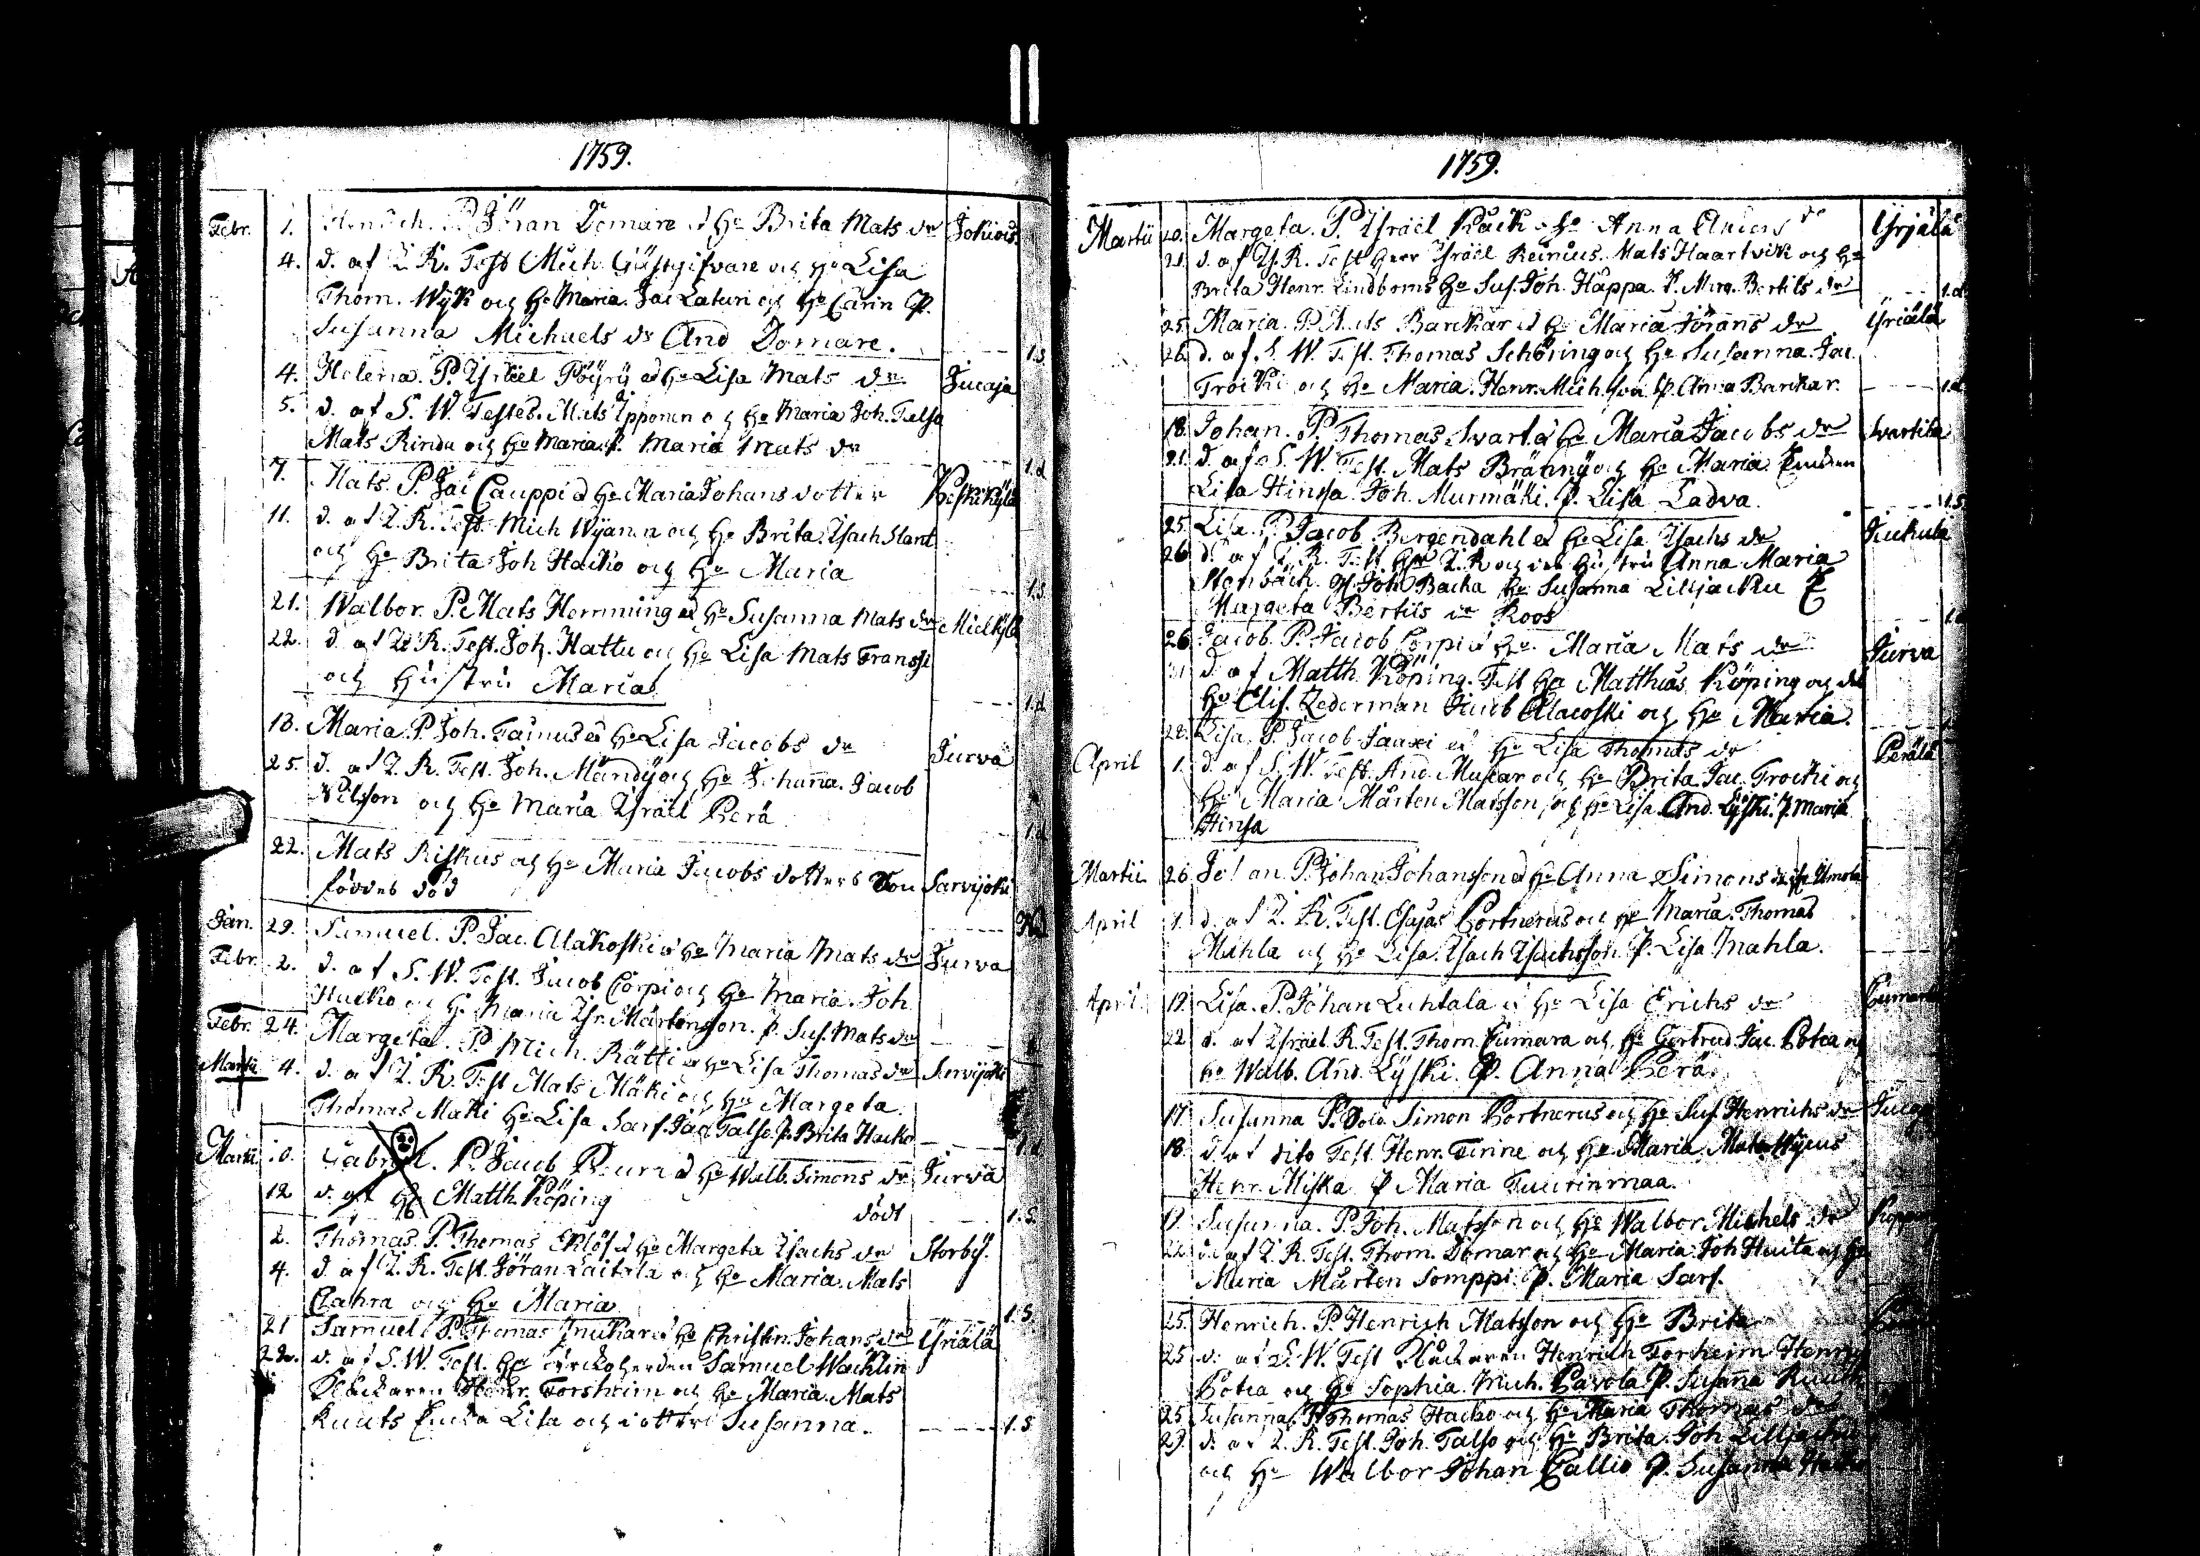 1759.
Febr. 1. Henrich. P. Jöran Domare & Ho Brita Mats dr Jokiois
4. d. af I. R. Test Mich. Giästgifvare och Ho Lisa
Thom. Wyk och Ho Maria. Jac Laturi och Ho Carin P.
Susanna Michaels dr And Domare. 1.s
4. Helena. P. Israel Pöyry & Ho Lisa Mats dr Jucaja
5. d. af S. W. Testes. Mats Ipponen och Ho Maria Joh. Talso
Mats Rinda och Ho Maria. P. Maria Mats dr 1.d
7. Mats. P. Jac Cauppi & Ho Maria Johans dotter Keskikylä
11. d. af I. R. Test. Mich Wyanna och Ho Brita. Isach Slant
och Ho Brita Joh Hacko och Ho Maria 1.s
21. Walbor. P. Mats Hemming & Ho Susanna Mats dr Mielkylä
22. d. af I. R. Test. Joh. Hattu och Ho Lisa Mats Franssi
och Hustru Maria 1.d
18. Maria. P. Joh. Fainus & Ho Lisa Jacobs dr Jurva
25. d. af I. R. Test. Joh. Mändy och Ho Johanna. Jacob
Nilsson och Ho Maria Israel Perä 1.d
22. Mats Riskus och Ho Maria Jacobs dotters Son Sarvijoki
föddes död
Jan. 29. Samuel. P. Jac. Alakoski & Ho Maria Mats dr Jurva
Febr. 2. d. af S. W. Test. Jacob Corpi och Ho Maria. Joh
Hacko och H. Maria Isr. Mårtensson. P. Sus. Mats dr
Febr. 24. Margeta. P. Mich. Rätti & Ho Lisa Thomas dr Sarvijoki
Martii 4. d. af I. R. Test Mats Mäki och Ho Margeta.
Thomas Mäki Ho Lisa Sarf. Jac Talso. P. Brita Hacko 1.d
Martii 10. Gabriel. P. Jacob & Ho Walb. Simons dr Jurva
12 d. af Hr Matth. Köping
dödt 1.s.
2. Thomas. P. Thomas Eklöf & Ho Margeta Isachs dr Storby.
4. d. af I. R. Test. Jöran Laitila och Ho Maria. Mats
och Ho Maria 1.s
21 Samuel. P. Thomas & Ho Christin. Johans dr Yriälä
22. d. af S. W. Test. Hr Kyrckoherden Samuel Wacklin
Klockaren Henr. Forsheim och Ho Maria. Mats
Knuts Encka Lisa och dotter Susanna. 1.s
1759.
Martii 20. Margeta. P. Israel Kråck & Ho Anna Anders dr Yrjälä
21. d. af Is. R. Test Herr Israel Reinius. Mats Haartvik och Ho
Brita Henr. Lindboms Ho Sus. Joh. Häppa. P. Marg. Bertils dr 1.d
25. Maria. P. Mats Barckar & Ho Maria Jörans dr Yriälä
26. d. af S. W. Test. Thomas Schöring och Ho Susanna. Jac.
Trocki och Ho Maria. Henr. Mich. P. Anna Barckar. 1.d
18. Johan. P. Thomas Svart & Ho Maria Jacobs dr Svartila
21. d. af S. W. Test. Mats Bränny och Ho Maria. Enckan
Lisa Hinsa. Joh. Murmäki. P. Lisa Ladva. 1.s
25. Lisa. P. Jacob Bergendahl & Ho Lisa Isachs dr Juckula
26 d. af I. R. Test Hr I. R och des Hustru Anna Maria
Joh Backa Ho Susanna Lilljacku E
Margeta Bertils dr Roos
26. Jacob. P. Jacob Corpi & Ho Maria Mats dr Jurva
31 d. af Matth. Köping. Test Hr Matthias Köping och des
Ho Elis. Zederman Jacob Alacoski och Ho Maria.
28. Lisa. P. Jacob Jaaxi & Ho Lisa Thomas dr Perälä
April 1. d. af S. W. Test. And. Muscar och Ho Brita Jac. Trocki och
Ho Maria Mårten Matsson, och Ho Lisa And. Lyski. P. Maria
Hinsa
Martii 26. Johan. P. Johan Johansson & Ho Anna Simons dr
April 1. d. af I. R. Test. Esajas Portnerus och Ho Maria. Thomas
Mahla och Ho Lisa. Isach Isachsson. P. Lisa Mahla.
April 19. Lisa. P. Johan Luhtala & Ho Lisa Erichs dr
22 d. af Israel R. Test. Thom. Cumara och Ho Gertrud. Jac. Potca och
Ho Walb. And. Lyski. P. Anna Perä.
17. Susanna P. Simon Portnerus och Ho Sus. Henrichs dr
18. d. af dito Test. Henr. Tirine och Ho Maria. Mats
Henr. Miska P. Maria Tuurinmaa.
19. Susanna. P. Joh. Matsson och Ho Walbor Michels dr
22. d. af I. R. Test. Thom. Domar och Ho Maria. Joh Hauta och Ho
Maria Mårten Somppi. P. Maria Sarf.
25. Henrich. P. Henrich Matsson och Ho Brita
25 d. af S. W. Test Klockaren Henrich Forsheim Henr.
Potca och Ho Sophia. Mich. Pavola. P. Susanna Knuts
25 Susanna. P. Thomas Hacko och Ho Maria Thomas dr
29. d. af I. R. Test. Joh. Talso och Ho Brita. Joh Lilljacku
och Ho Walbor Johan Callio P. Susanna